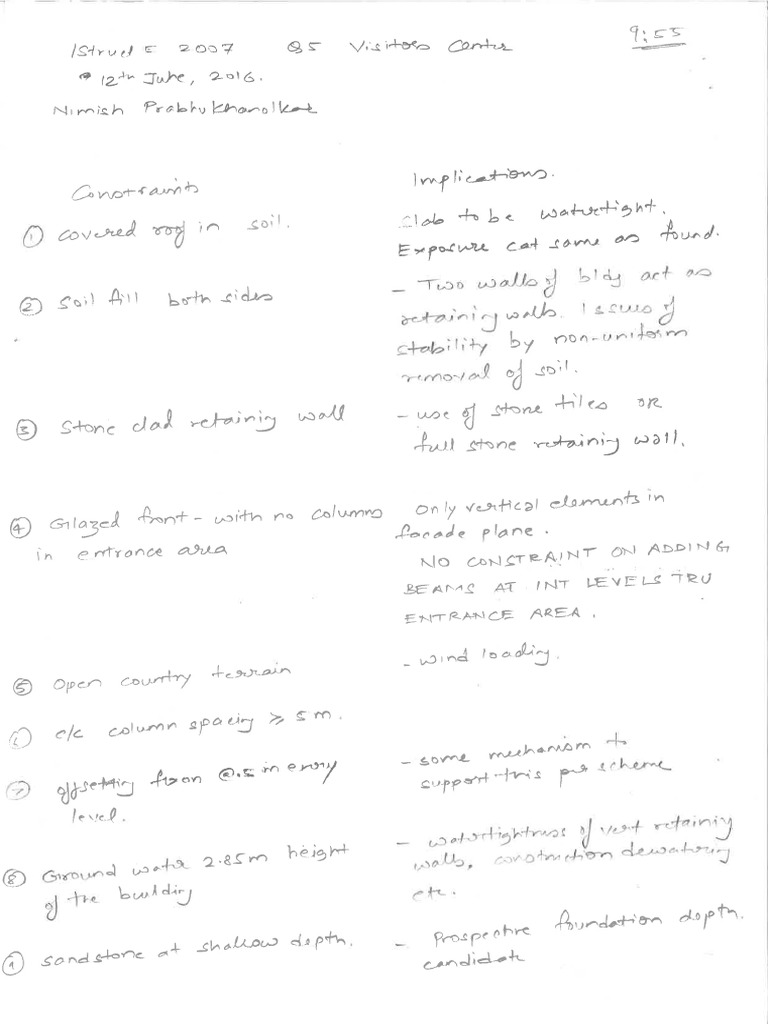 9:55
IStruct E 2007 Q5 Visitors Center
12th June, 2016.
Nimish Prabhukhanolkar
Constraints
Implications.
① covered roof in soil.
slab to be watertight.
Exposure cat same as found.
② Soil fill both sides
- Two walls of bldg act as
retaining walls. Issues of
stability by non-uniform
removal of soil.
③ Stone clad retaining wall
- use of stone tiles OR
full stone retaining wall.
④ Glazed front - with no columns
in entrance area
Only vertical elements in
facade plane.
NO CONSTRAINT ON ADDING
BEAMS AT INT LEVELS TRU
ENTRANCE AREA.
⑤ Open country terrain
- wind loading.
⑥ c/c column spacing ≥ 5m.
⑦ offsetting @.5 in every
level.
- some mechanism to
support this per scheme
⑧ Ground water 2.85m height
of the building
- watertightness of vert retaining
walls, construction dewatering
etc.
⑨ sandstone at shallow depth.
- Prospective foundation depth.
candidate